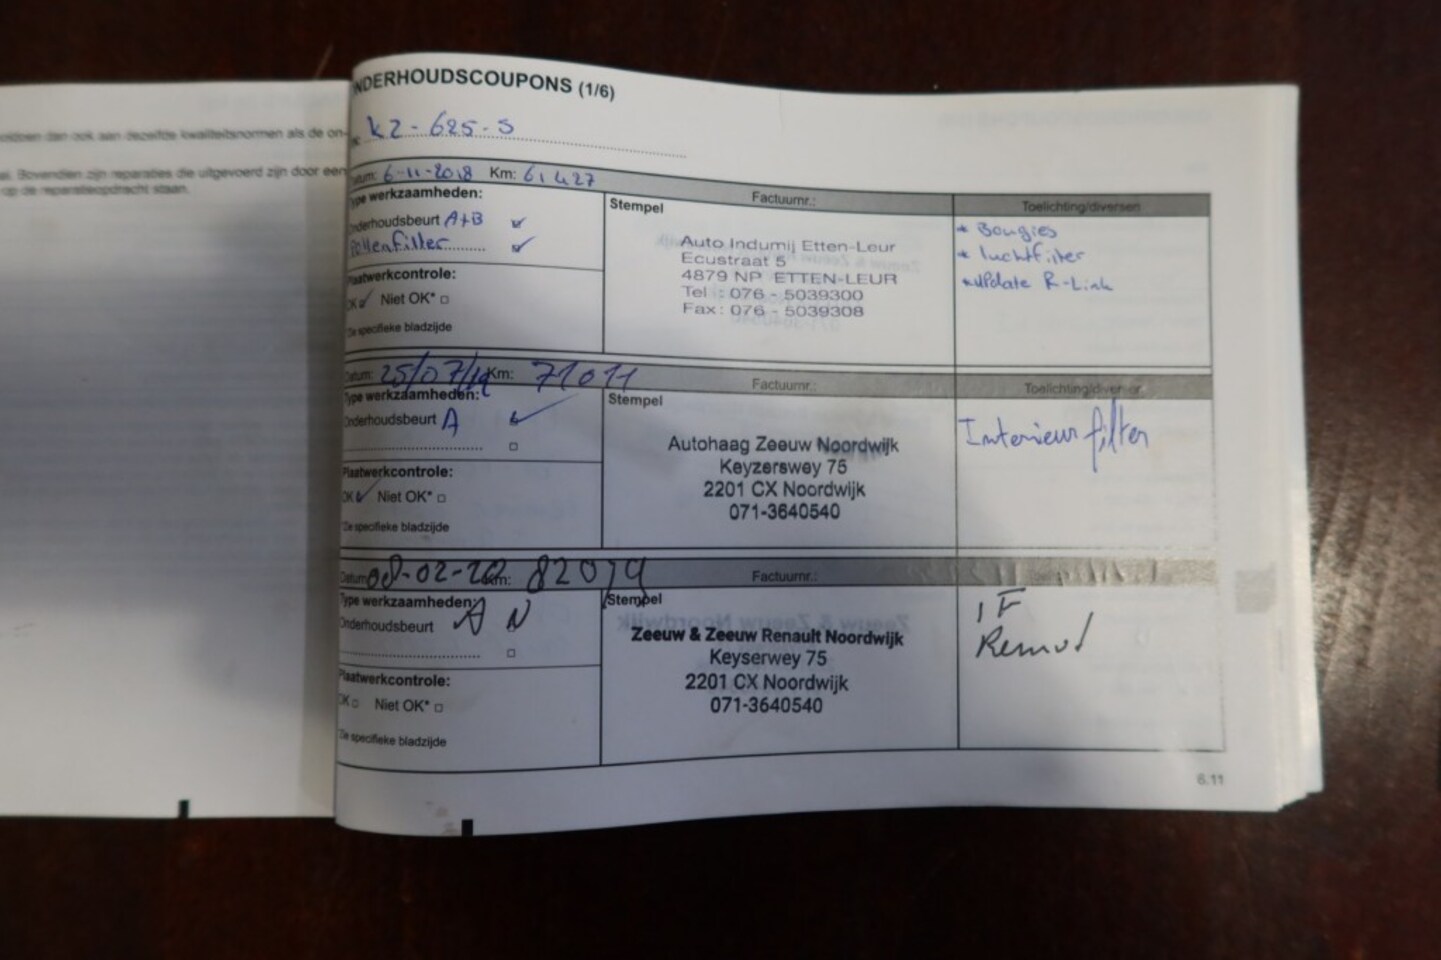 oldoen dan ook aan dezelfde kwaliteitsnormen als de on-
Bovendien zijn reparaties die uitgevoerd zijn door een
op de reparatieopdracht staan.
NDERHOUDSCOUPONS (1/6)
KZ-625-S
atum: 6-11-2018 Km: 61427
Factuurnr.:
Toelichting/diversen
Type werkzaamheden:
Onderhoudsbeurt A+B
Pollenfilter
Plaatwerkcontrole:
OK Niet OK*
*De specifieke bladzijde
Stempel
Auto Indumij Etten-Leur
Ecustraat 5
4879 NP ETTEN-LEUR
Tel : 076 - 5039300
Fax : 076 - 5039308
* Bougies
* luchtfilter
* update R-Link
Datum: 25/07/19 Km: 71011
Factuurnr.:
Toelichting/diversen
Type werkzaamheden:
Onderhoudsbeurt A
Plaatwerkcontrole:
OK Niet OK*
*De specifieke bladzijde
Stempel
Autohaag Zeeuw Noordwijk
Keyzerswey 75
2201 CX Noordwijk
071-3640540
Interieur filter
Datum 08-02-20 Km: 82079
Factuurnr.:
Type werkzaamheden:
Onderhoudsbeurt A
Plaatwerkcontrole:
OK Niet OK*
*De specifieke bladzijde
Stempel
Zeeuw & Zeeuw Renault Noordwijk
Keyserwey 75
2201 CX Noordwijk
071-3640540
IF
6.11